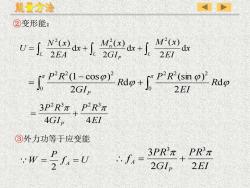 能量方法
②变形能：
U = ∫_L N²(x)/2EA dx + ∫_L M_n²(x)/2GI_P dx + ∫_L M²(x)/2EI dx
= ∫_0^π P²R²(1 − cos φ)²/2GI_P Rdφ + ∫_0^π P²R²(sin φ)²/2EI Rdφ
= 3P²R³π/4GI_P + P²R³π/4EI
③外力功等于应变能
∵ W = P/2 f_A = U ∴ f_A = 3PR³π/2GI_P + PR³π/2EI